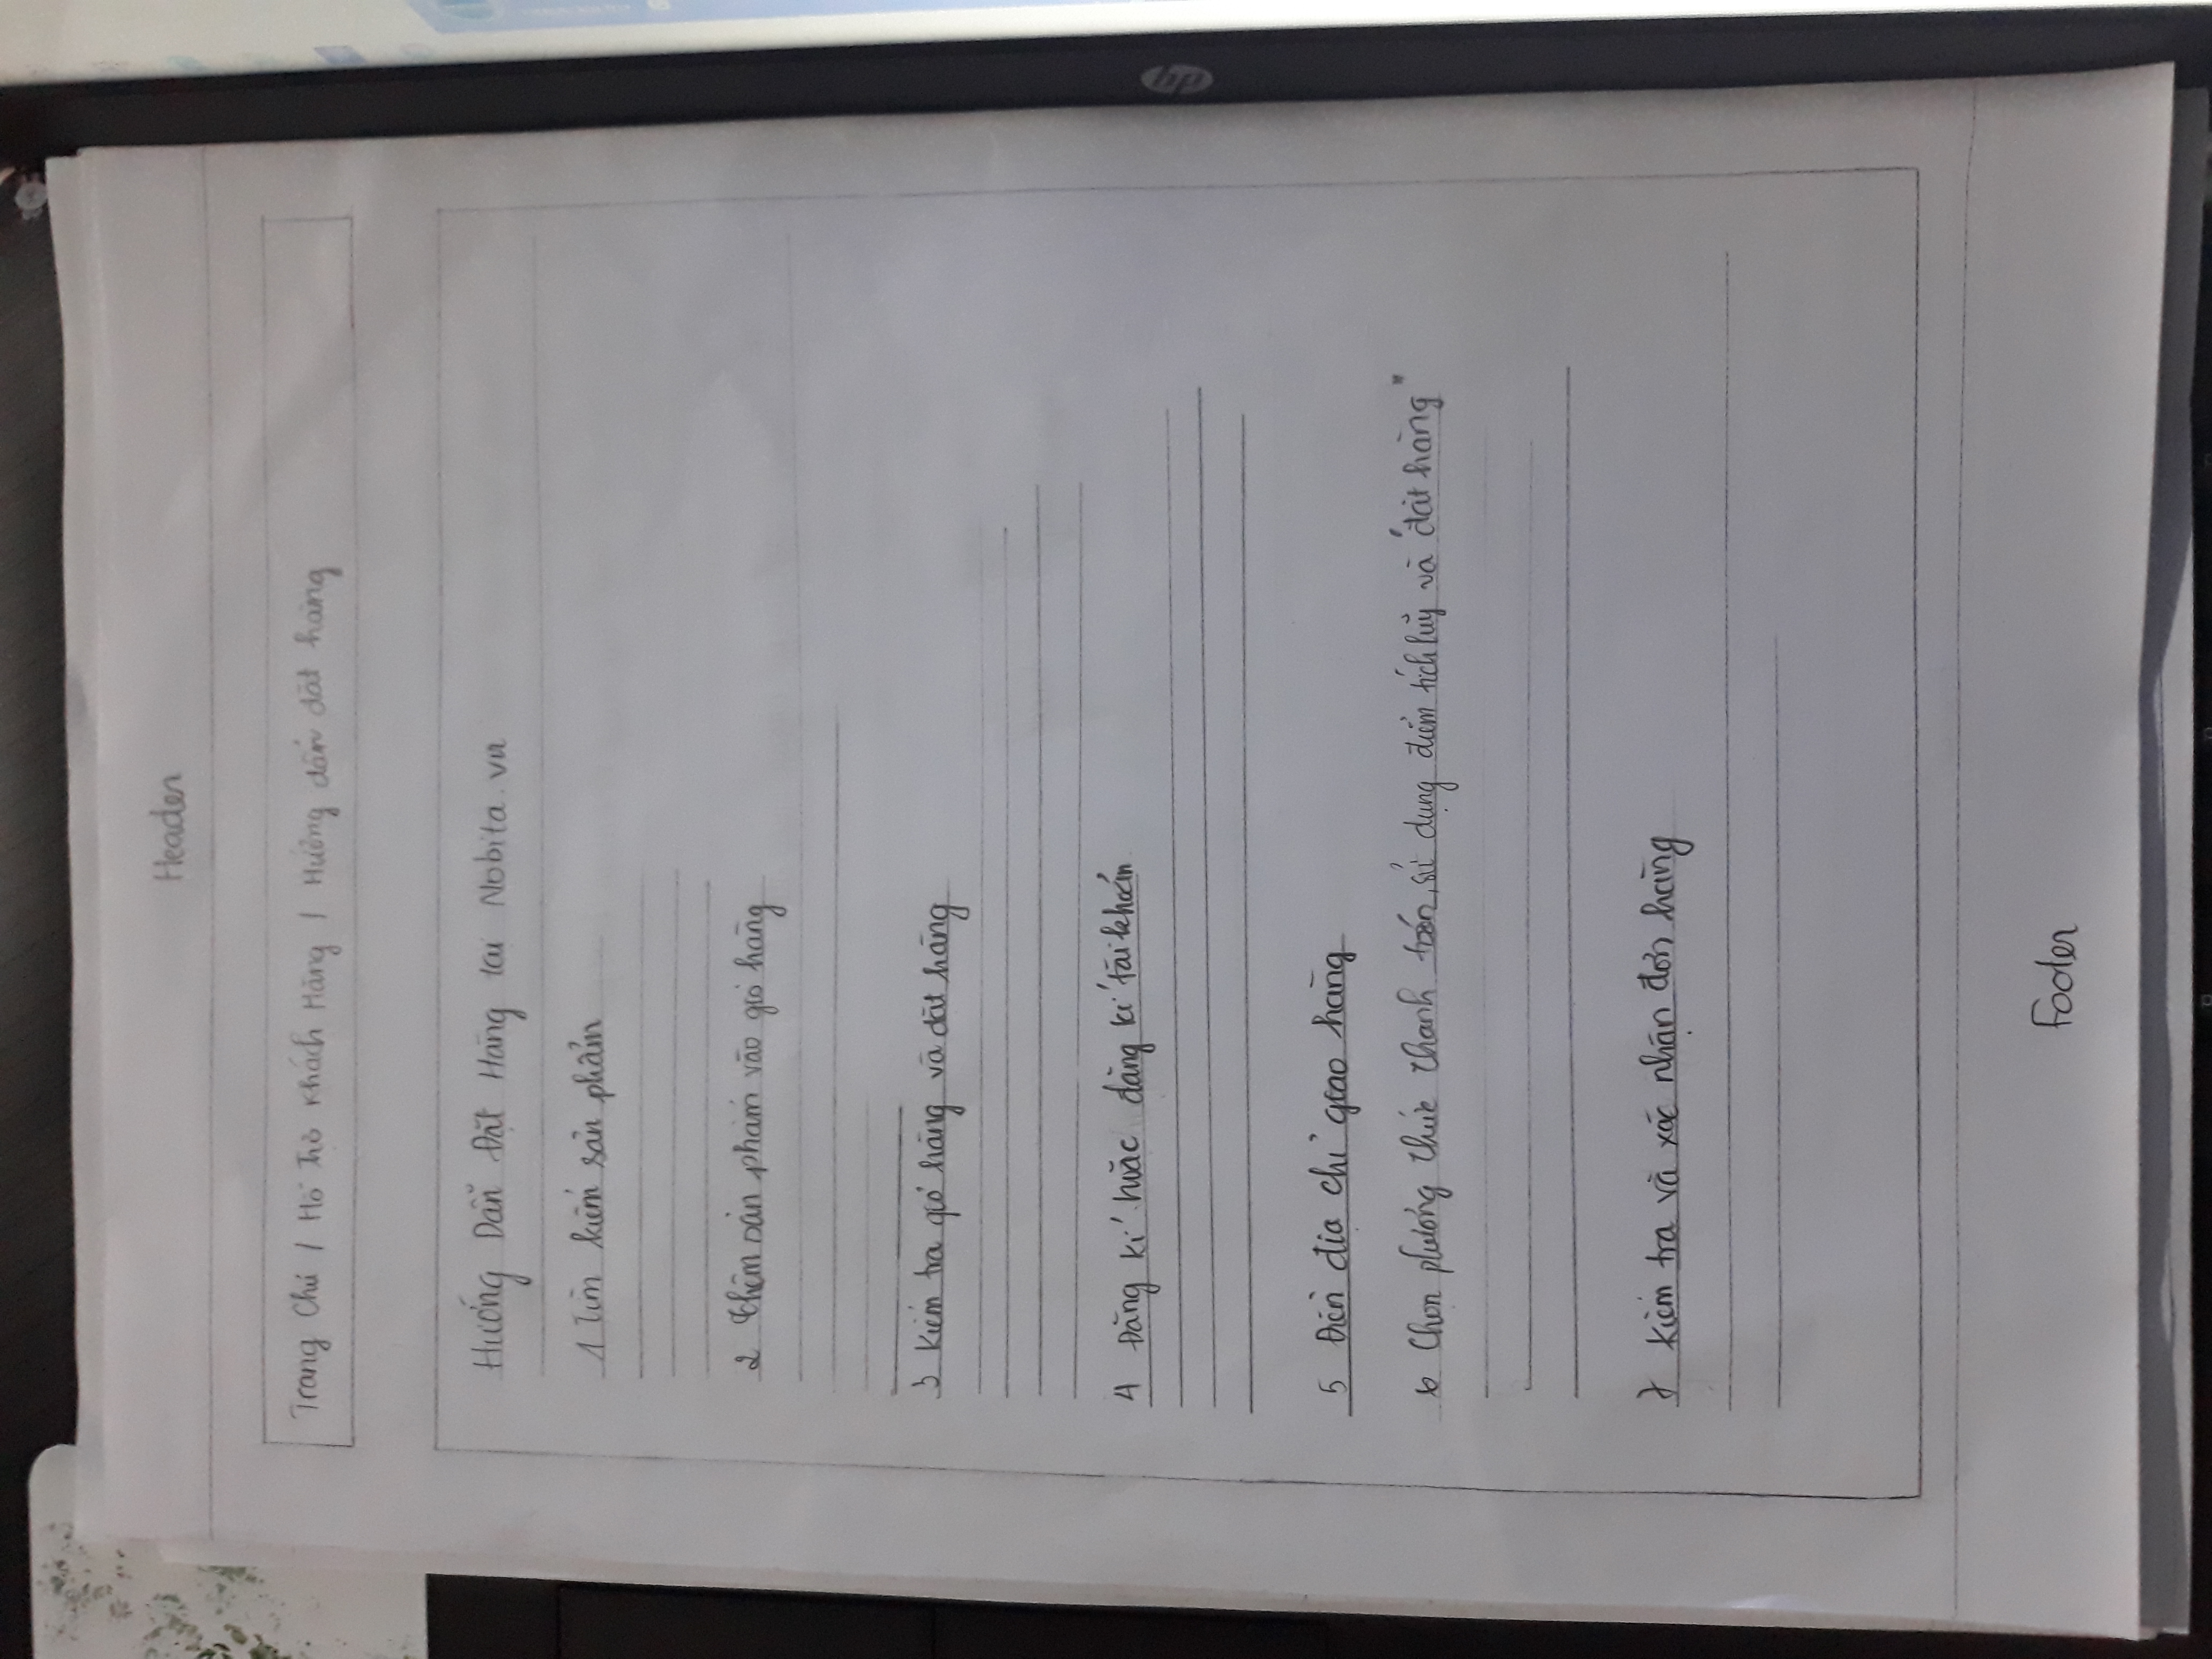 Header
Trang Chủ / Hỗ Trợ Khách Hàng / Hướng dẫn đặt hàng
Hướng Dẫn Đặt Hàng tại Nobita.vn
1 Tìm kiếm sản phẩm
2 thêm sản phẩm vào giỏ hàng
3 Kiểm tra giỏ hàng và đặt hàng
4 Đăng kí hoặc đăng kí tài khoản
5 Điền địa chỉ giao hàng
6 Chọn phương thức thanh toán, sử dụng điểm tích luỹ và "đặt hàng"
7 Kiểm tra và xác nhận đơn hàng
Footer
hp